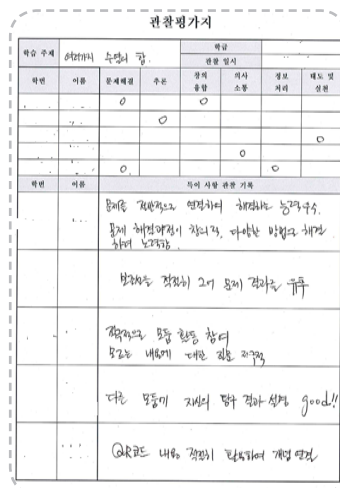 관찰평가지
학습 주제 여러가지 수열의 합 학급
관찰 일시
학번 이름 문제해결 추론 창의 융합 의사 소통 정보 처리 태도 및 실천
O O
O
O
O
O O
학번 이름 특이 사항 관찰 기록
문제를 전반적으로 연결하며 해결하는 능력 우수.
문제 해결과정이 창의적, 다양한 방법으로 해결
하려 노력함.
보조선을 적절히 그어 문제 결과를 유추
적극적으로 모둠 활동 참여
모르는 내용에 대한 질문 적극적
다른 모둠에 자신의 탐구 결과 설명 good!!
QR코드 내용 적절히 활용하여 개념 연결